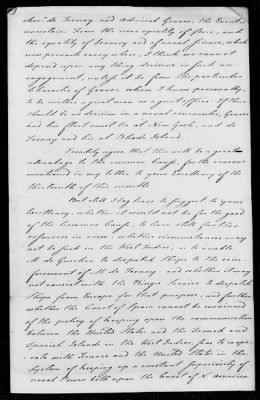 chev.r de Ternay and Admiral Graves. the Event is
uncertain. From the near equality of Force, and
the equality of bravery and of naval science, which
now prevails every where, I think we cannot
depend upon any thing decisive in such an
engagement, unless it be from the particular
Character of Graves, whom I know personally,
to be neither a great man nor a great officer. If there
should be no decision in a naval rencounter, Graves
and his fleet must lie at New York, and de
Ternay and his at Rhode Island.
I readily agree that this will be a great
advantage to the common Cause, for the reasons
mentioned in my letter to your Excellency of the
thirteenth of this month.
But still I beg leave to suggest to your
Excellency, whether it would not be for the good
of the Common Cause, to have still further
reference in view. whether circumstances may
not be such in the West Indies, as to enable
M. de Guichen to despatch ships to the rein-
forcement of M. de Ternay. and whether it may
not consist with the Kings Service to despatch
ships from Europe for that purpose. and further
whether the Court of Spain cannot be convinced
of the policy of keeping open the communication
between the United States and the French and
Spanish Islands in the West Indies, so as to coope-
-rate with France and the United States in the
System of keeping up a constant superiority of
naval power both upon the Coast of N. America